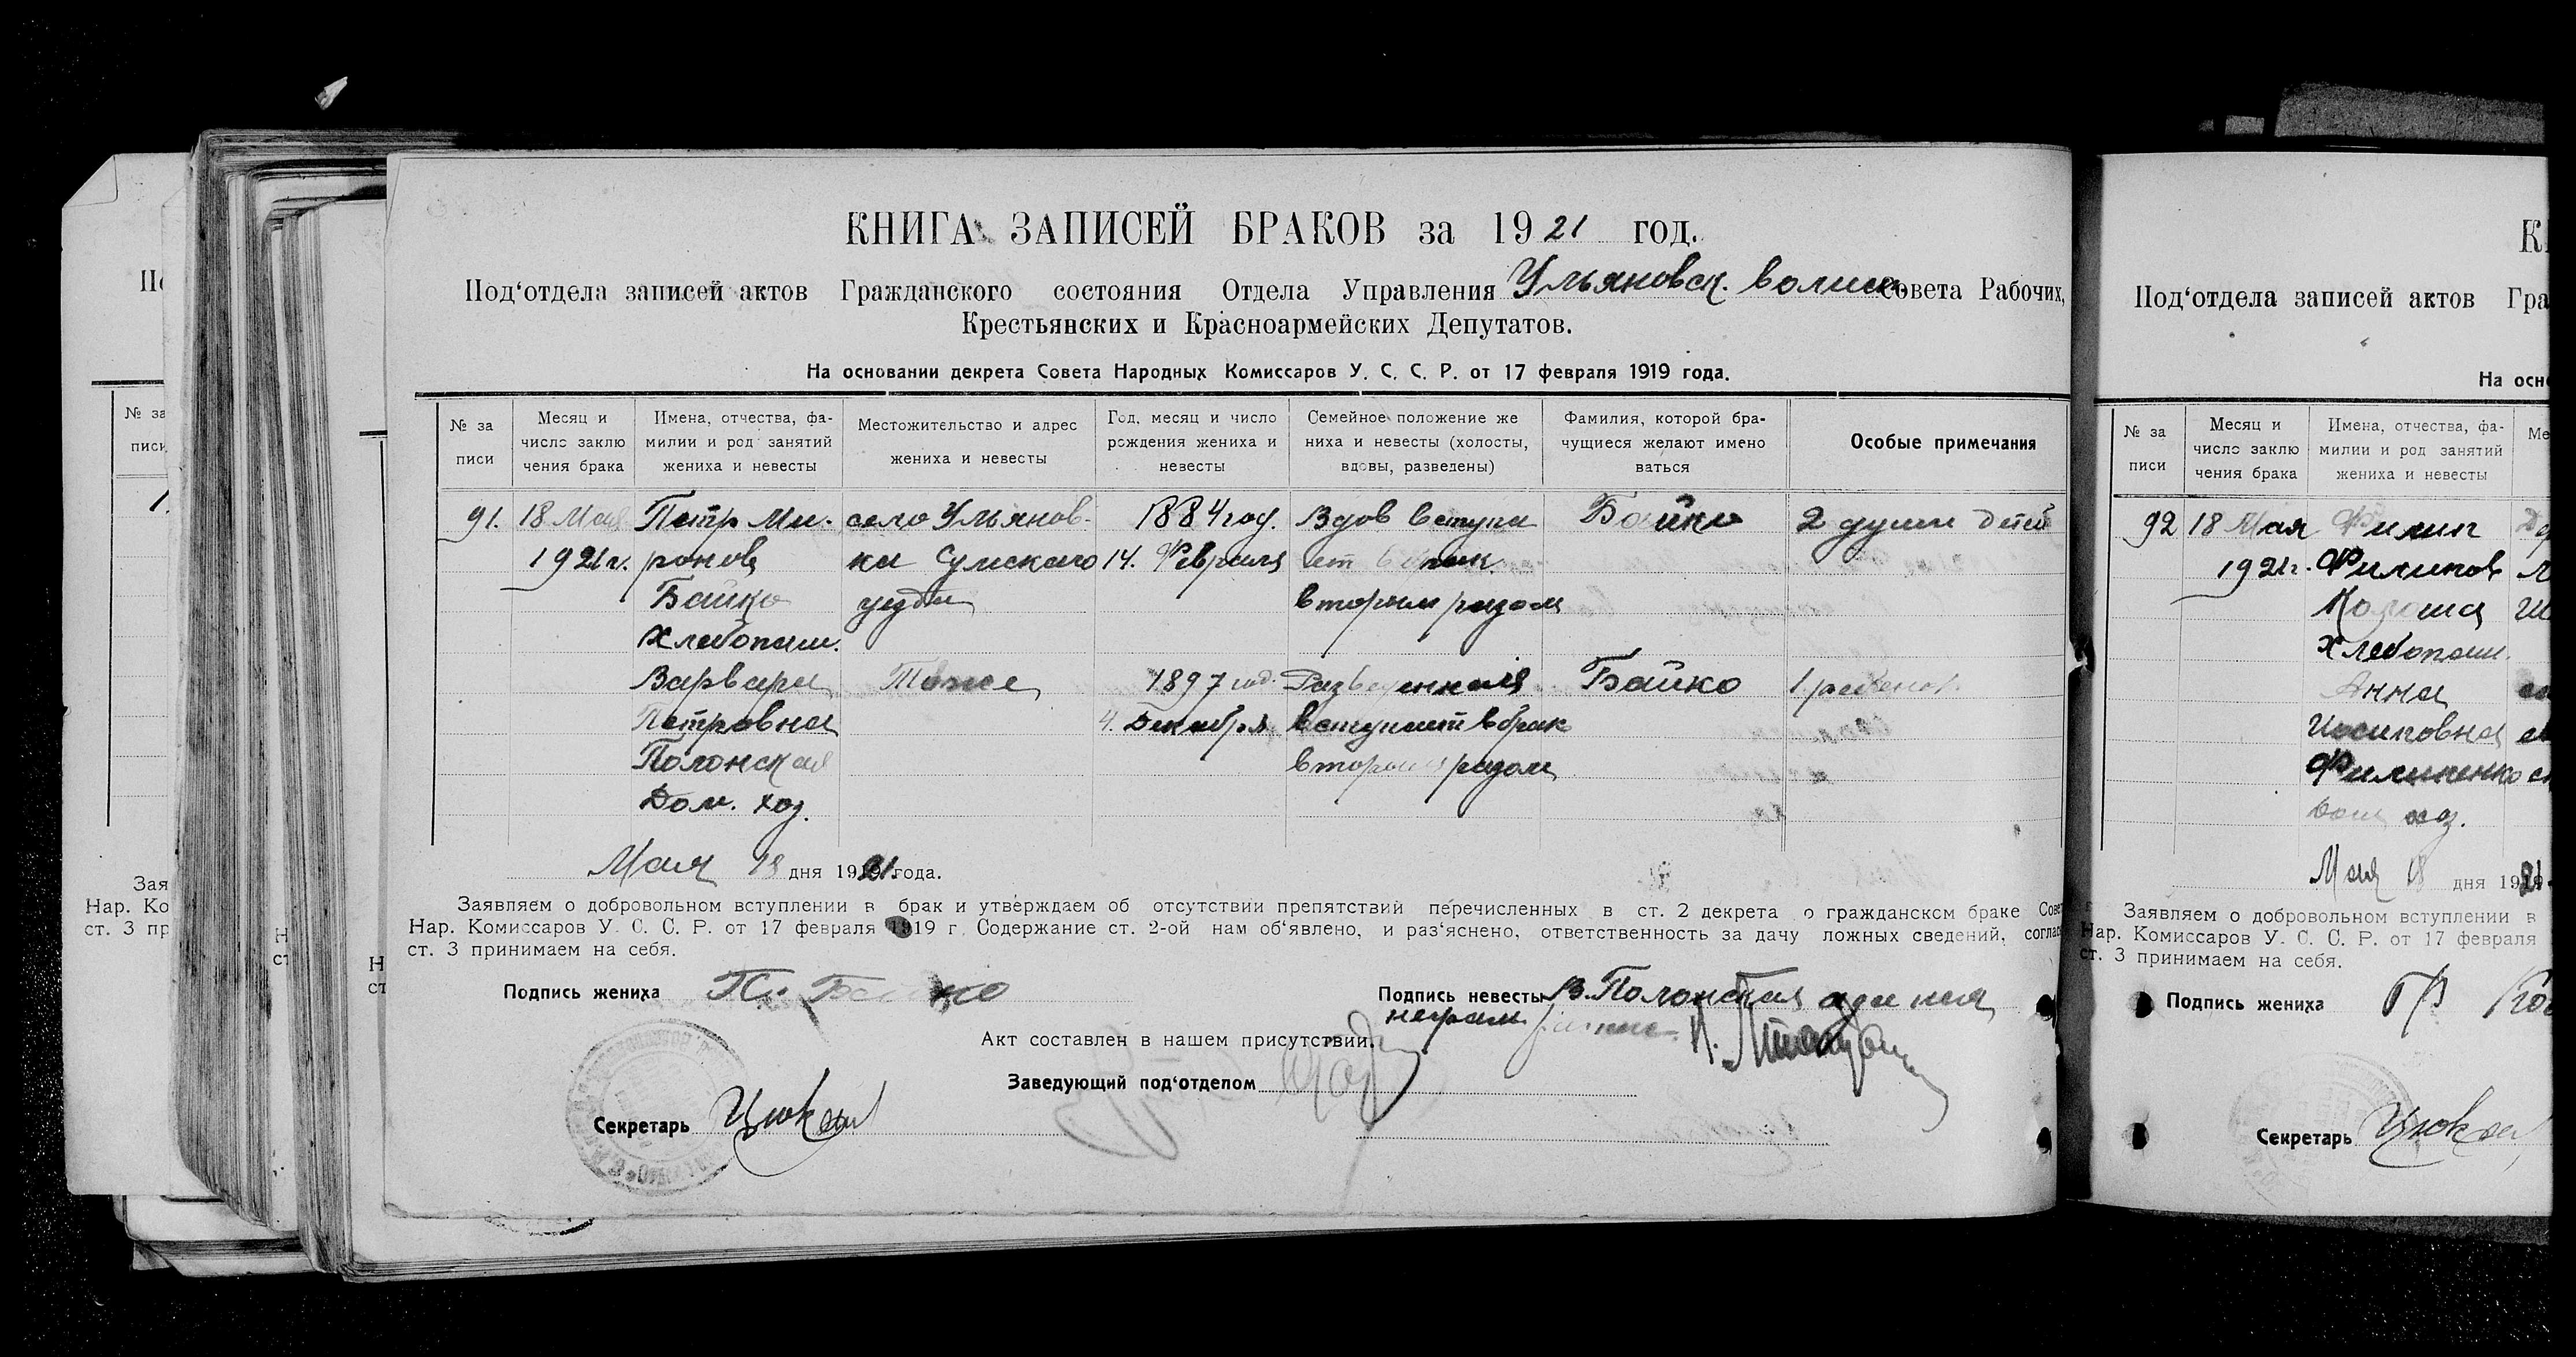 КНИГА ЗАПИСЕЙ БРАКОВ за 1921 год.
Под‘отдела записей актов Гражданского состояния Отдела Управления Ульяновск. волисп. Совета Рабочих,
Крестьянских и Красноармейских Депутатов.
На основании декрета Совета Народных Комиссаров У. С. С. Р. от 17 февраля 1919 года.
№ за
писи
Месяц и
число заклю
чения брака
Имена, отчества, фа-
милии и род занятий
жениха и невесты
Местожительство и адрес
жениха и невесты
Год, месяц и число
рождения жениха и
невесты
Семейное положение же
ниха и невесты (холосты,
вдовы, разведены)
Фамилия, которой бра-
чущиеся желают имено
ваться
Особые примечания
91.
18 Мая
1921 г.
Петр Ми-
ронов
Байко
Хлебопаш.
село Ульянов-
ка Сумского
уезда
1884 год.
14. Февраля
Вдов вступа
ет в брак
вторым разом
Байко
2 души детей
Варвара
Петровна
Полонская
Дом. хоз.
Тоже
1897 год.
4. Декабря
Разведенная
вступает в брак
вторым разом
Байко
1 ребенок
Мая 18 дня 1921 года.
Заявляем о добровольном вступлении в брак и утверждаем об отсутствии препятствий перечисленных в ст. 2 декрета о гражданском браке Сове
Нар. Комиссаров У. С. С. Р. от 17 февраля 1919 г. Содержание ст. 2-ой нам об‘явлено, и раз‘яснено, ответственность за дачу ложных сведений, соглас
ст. 3 принимаем на себя.
Подпись жениха П. Байко
Подпись невесты В. Полонская
неграм.
Акт составлен в нашем присутствии.
Заведующий под‘отделом
Секретарь
№ за
писи
1.
Зая
Нар. Ко
ст. 3 пр
К
Под‘отдела записей актов Гра
На осн
№ за
писи
Месяц и
число заклю
чения брака
Имена, отчества, фа-
милии и род занятий
жениха и невесты
Ме
92
18 Мая
1921 г.
Филип
Филипов
Хлебопаш.
Анна
Иосиповна
Филипенко
Дом. хоз.
Мая 18 дня 1921
Заявляем о добровольном вступлении в
Нар. Комиссаров У. С. С. Р. от 17 февраля
ст. 3 принимаем на себя.
Подпись жениха
Секретарь